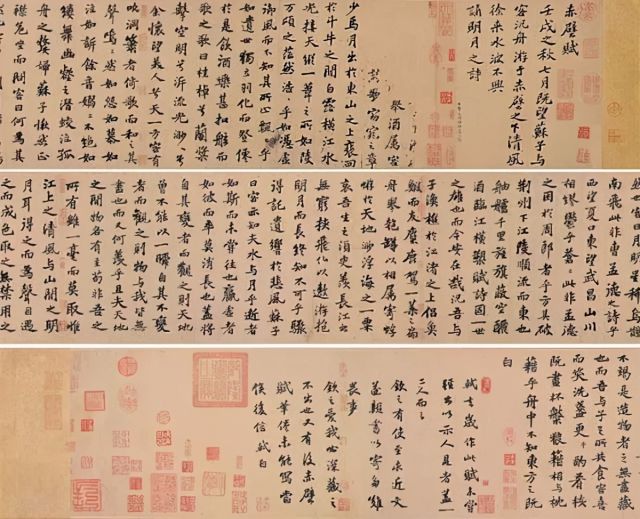 赤壁賦
壬戌之秋七月既望蘇子與
客泛舟游于赤壁之下清風
徐來水波不興
誦明月之詩
舉酒屬客
歌窈窕之章
少焉月出於東山之上徘徊
於斗牛之間白露橫江水
光接天縱一葦之所如陵
萬頃之茫然浩浩乎如馮虛
御風而不知其所止飄飄乎
如遺世獨立羽化而登僊
於是飲酒樂甚扣舷而
歌之歌曰桂棹兮蘭槳
擊空明兮泝流光渺渺兮
余懷望美人兮天一方客有
吹洞簫者倚歌而和之其
聲嗚嗚然如怨如慕如
泣如訴餘音嫋嫋不絕如
縷舞幽壑之潛蛟泣孤
舟之嫠婦蘇子愀然正
襟危坐而問客曰何為其
稀烏鵲
南飛此非曹孟德之詩乎
西望夏口東望武昌山川
相繆鬱乎蒼蒼此非孟德
之困於周郎者乎方其破
荊州下江陵順流而東也
舳艫千里旌旗蔽空釃
酒臨江橫槊賦詩固一世
之雄也而今安在哉況吾與
子漁樵於江渚之上侶魚
鰕而友麋鹿駕一葉之扁
舟舉匏樽以相屬寄蜉
蝣於天地渺浮海之一粟
哀吾生之須臾羨長江之
無窮挾飛仙以遨遊抱
明月而長終知不可乎驟
得託遺響於悲風蘇子
曰客亦知夫水與月乎逝者
如斯而未嘗往也贏虛者
如彼而卒莫消長也蓋將
自其變者而觀之則天地
曾不能以一瞬自其不變
者而觀之則物與我皆無
盡也而又何羨乎且夫天地
之間物各有主苟非吾之
所有雖一毫而莫取惟
江上之清風與山間之明
月耳得之而為聲目遇
之而成色取之無禁用之
不竭是造物者之無盡藏
也而吾與子之所共食客喜
而笑洗盞更酌肴核
既盡杯槃狼藉相與枕
藉乎舟中不知東方之既
白
軾去歲作此賦未嘗
輕出以示人見者蓋一
二人而已
欽之有使至求近文
遂親書以寄多難
畏事
欽之愛我必深藏之
不出也又有後赤壁
賦筆倦未能寫當
俟後信軾白